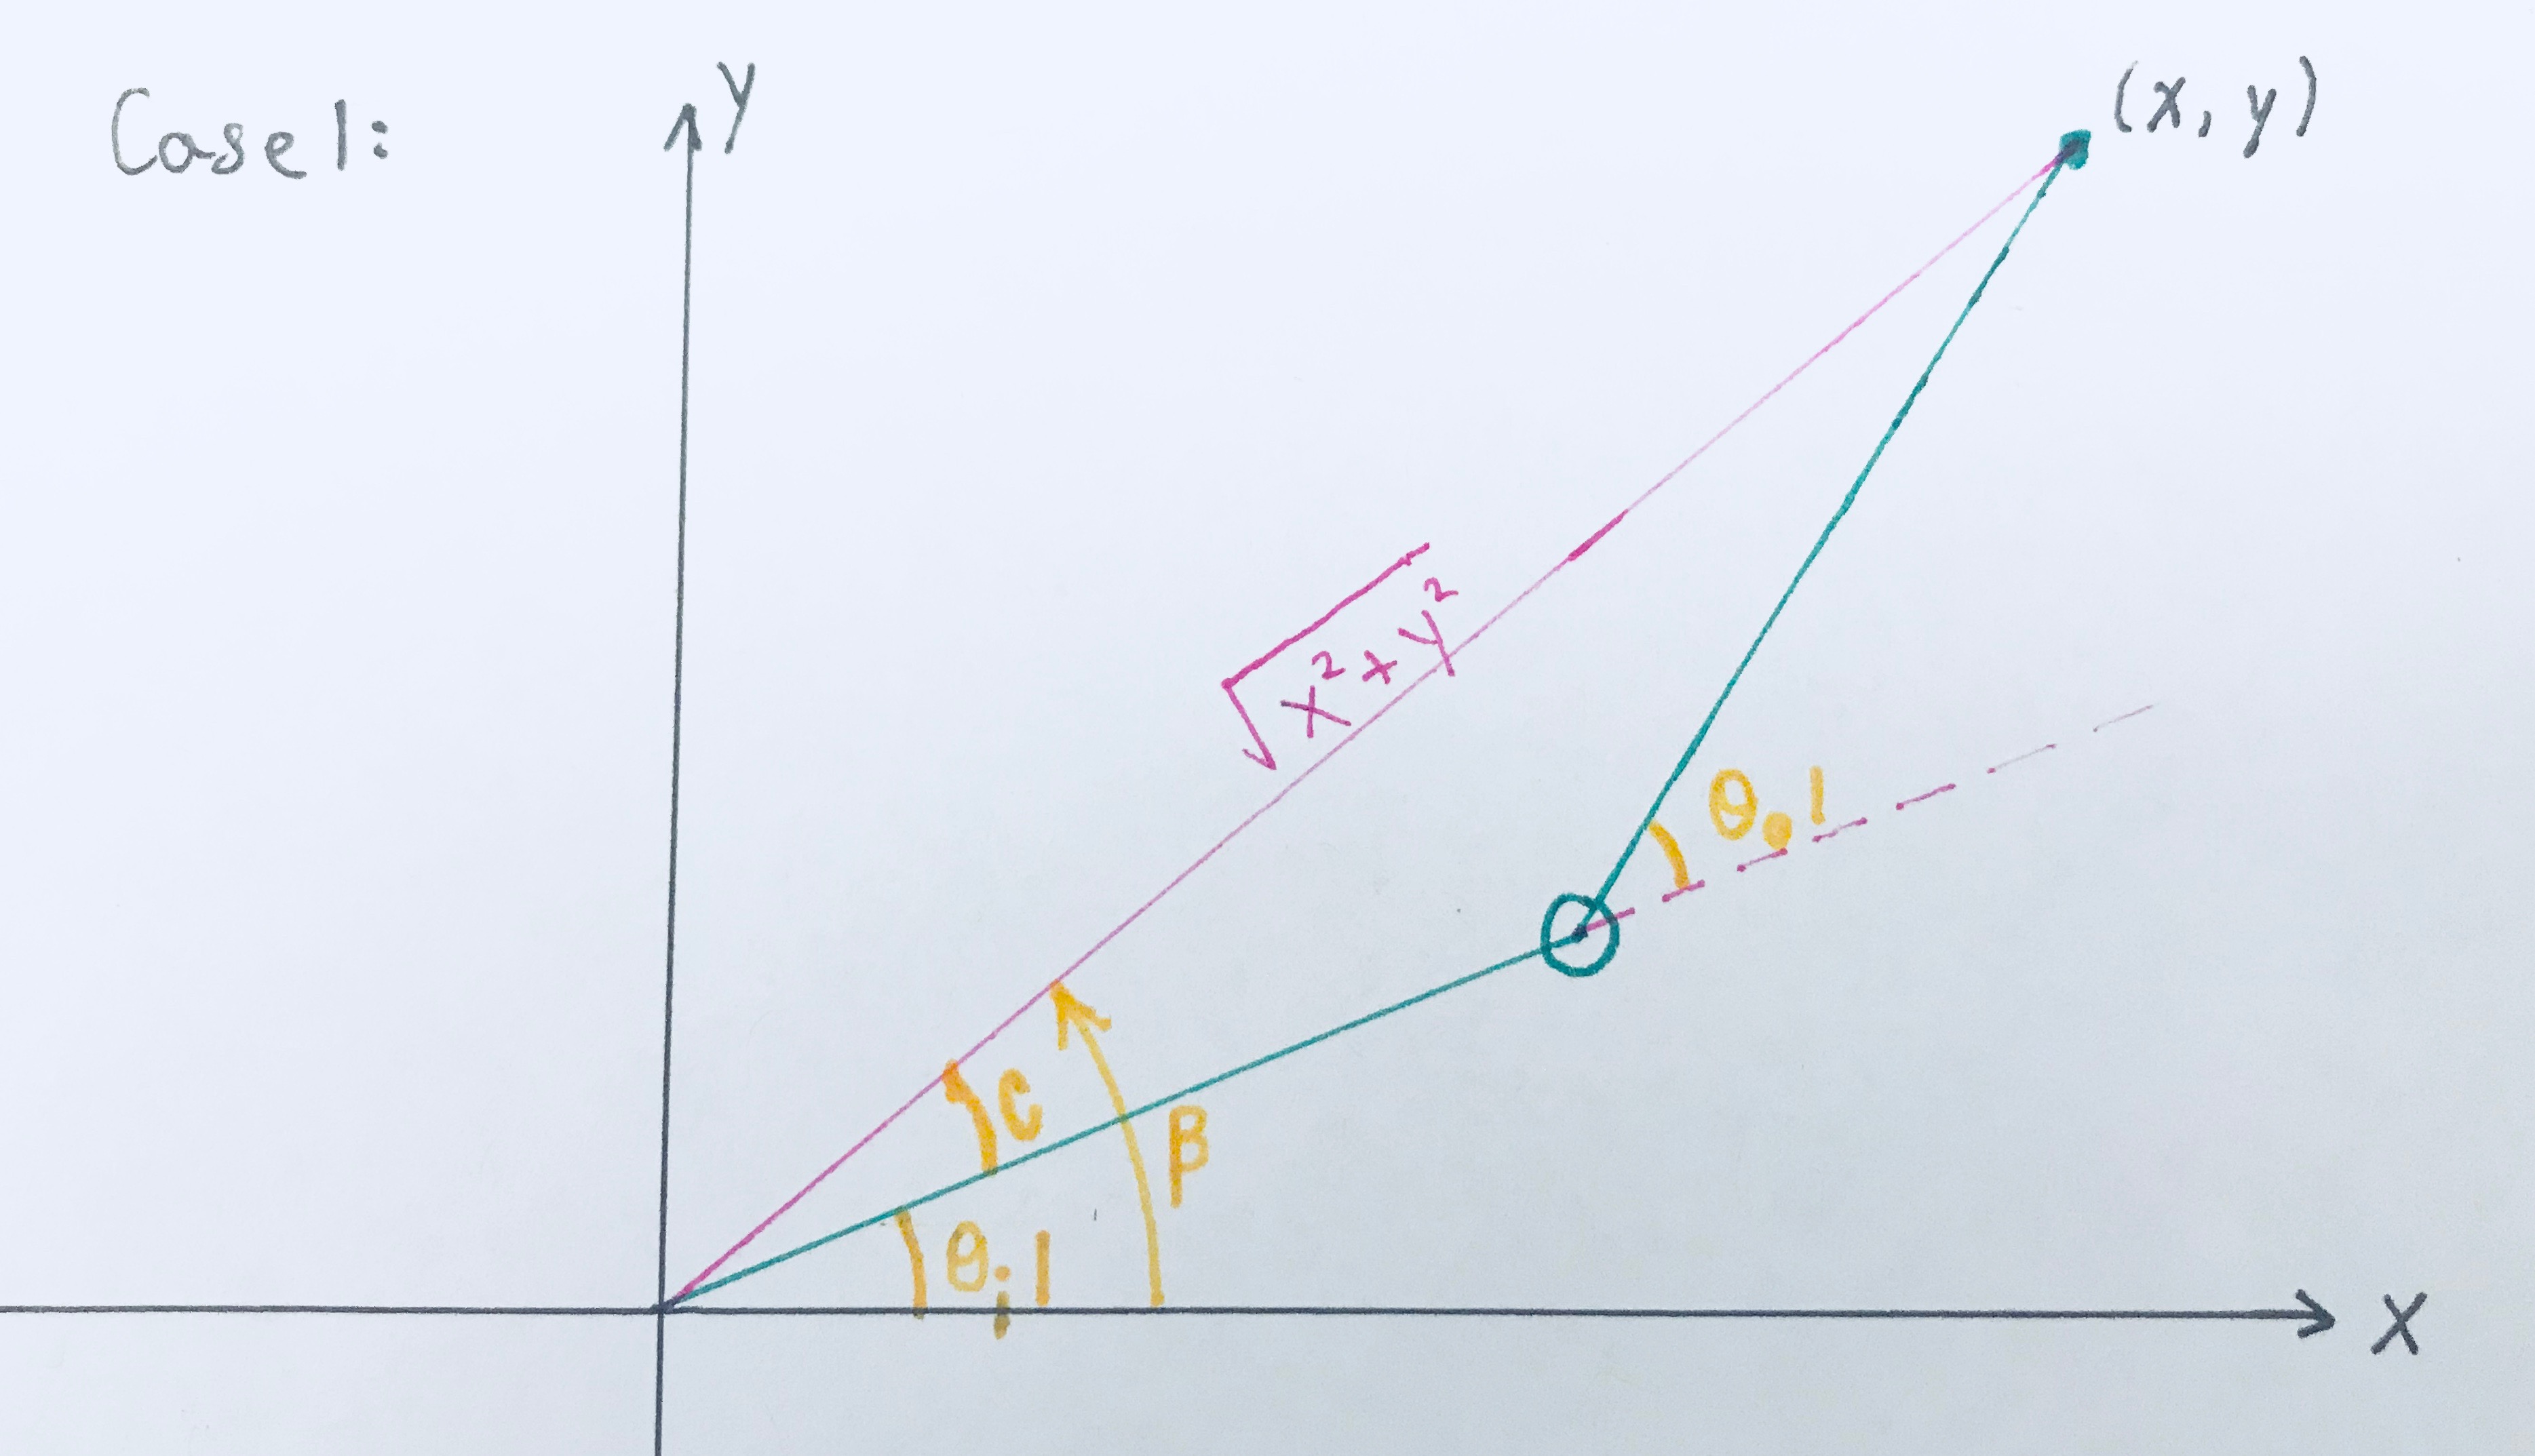 Case 1:
y
(x, y)
√x²+y²
θₒ1
C
β
θᵢ1
X